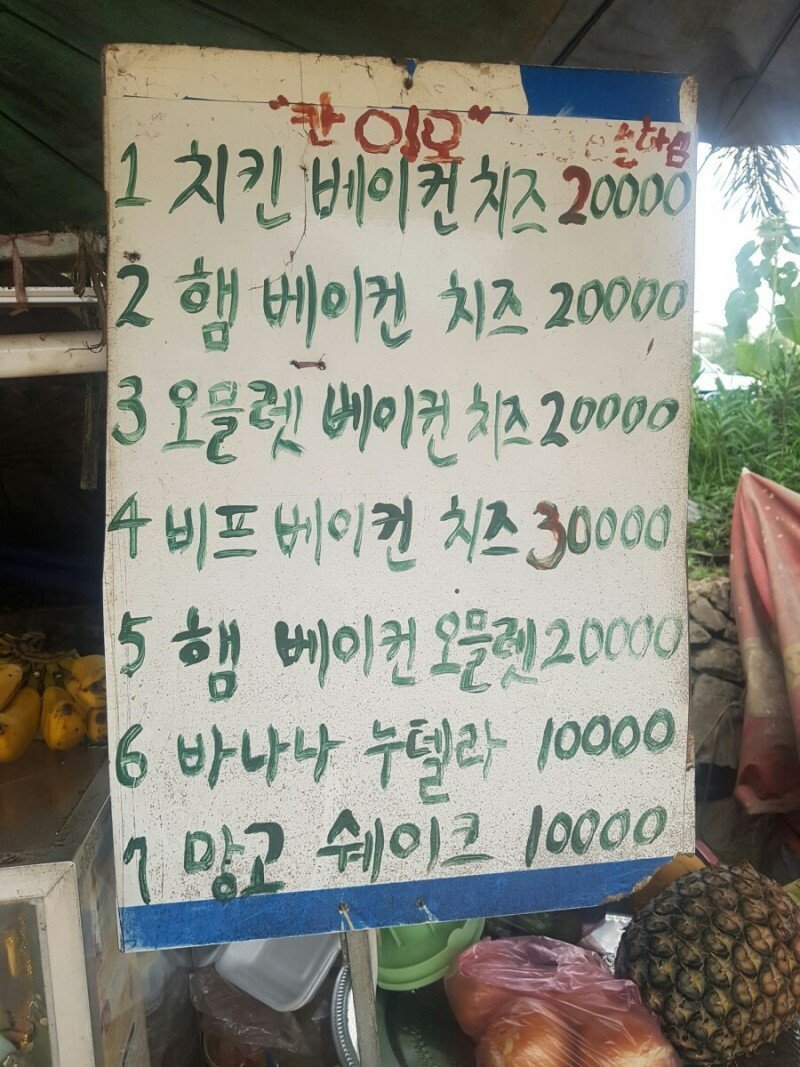 "칸 이모"
1 치킨 베이컨 치즈 20000
2 햄 베이컨 치즈 20000
3 오믈렛 베이컨 치즈 20000
4 비프 베이컨 치즈 30000
5 햄 베이컨 오믈렛 20000
6 바나나 누텔라 10000
7 망고 쉐이크 10000